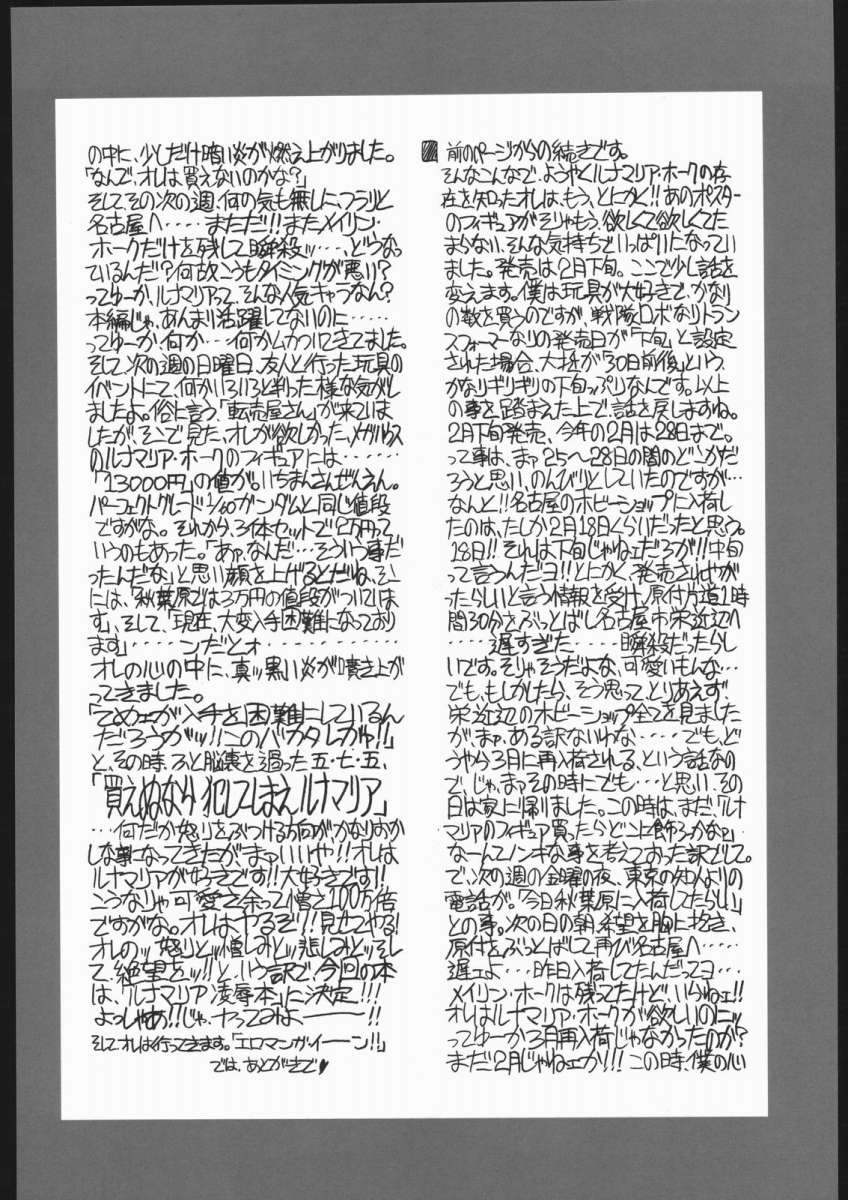 前のページからの続きです。
そんなこんなで、ようやくルナマリア・ホークの存
在を知ったオレは、もう、とにかく!!あのポスター
のフィギュアがそりゃもう、欲しくて欲しくてた
まらない、そんな気持ちでいっぱいになってい
ました。発売は2月下旬。ここで少し話を
変えます。僕は玩具が大好きで、かなり
の数を買うのですが、戦隊ロボなりトラン
スフォーマーなりの発売日が「下旬」と設定
された場合、大抵が「30日前後」という、
かなりギリギリの下旬っぷりなんです。以上
の事を踏まえた上で、話を戻しますね。
2月下旬発売、今年の2月は28日まで。
って事は、まァ25〜28日の間のどこかだ
ろうと思い、のんびりとしていたのですが…
なんと!!名古屋のホビーショップに入荷し
たのは、たしか2月18日くらいだったと思う。
18日!!それは下旬じゃねェだろが!!中旬
って言うんだヨ!!とにかく、発売されやが
ったらしいと言う情報を受け、原付片道1時
間30分をぶっとばし名古屋市栄近辺へ
……遅すぎた……瞬殺だったらし
いです。そりゃそうだよな、可愛いもんな…
でも、もしかしたら、そう思って、とりあえず
栄近辺のホビーショップ全てを見ました
が、まァ、ある訳ないわな……でも、ど
うやら3月に再入荷される、という話なの
で、じゃ、まァその時にでも…と思い、その
日は家に帰りました。この時は、まだ、「ルナ
マリアのフィギュア買ったらどこに飾ろかなァ」
なーんてノンキな事を考えておった訳でして。
で、次の週の金曜の夜、東京の知人よりの
電話が。「今日秋葉原に入荷したらしい」
との事。次の日の朝、希望を胸に抱き、
原付をぶっとばして再び名古屋へ……
遅ェよ…昨日入荷してたんだってヨ…
メイリン・ホークは残ってたけど、いらねェ!!
オレはルナマリア・ホークが欲しいのニッ
ってゆーか3月再入荷じゃなかったのか?
まだ2月じゃねェか!!!この時、僕の心
の中に、少しだけ暗い炎が燃え上がりました。
「なんで、オレは買えないのかな?」
そしてその次の週、何の気も無しに、フラリと
名古屋へ……まただ!!またメイリン・
ホークだけを残して瞬殺ッ…、どうなっ
ているんだ?何故こうもタイミングが悪い?
ってゆーか、ルナマリアって、そんな人気キャラなん?
本編じゃ、あんまり活躍してないのに……
ってゆーか、何か…何かムカついてきてました。
そして、次の週の日曜日、友人と行った玩具の
イベントにて、何かいろいろと判った様な気がし
ましたよ。俗に言う、「転売屋さん」が来ていま
したが、そこで見た、オレが欲しかった、メガハウス
のルナマリア・ホークのフィギュアには………
「13000円」の値が。いちまんさんぜんえん。
パーフェクトグレード1/60ガンダムと同じ値段
ですがな。それから、3体セットで2万円って
いうのもあった。「あァ、なんだ…そういう事だ
ったんだな」と思い顔を上げるとだね、そこ
には、「秋葉原では3万円の値段がついていま
す」、そして、「現在、大変入手困難になっており
ます」……ンだとォ…………
オレの心の中に、真ッ黒い炎が噴き上が
ってきました。
「てめェが入手を困難にしているん
だろうがッ!!このバカタレがァ!!」
と、その時、ふと脳裏を過った五・七・五、
「買えぬなら 犯してしまえ ルナマリア」
…何だか怒りをぶつける方向がかなりおか
しな事になってきたが、まァいいや!!オレは
ルナマリアが好きです!!大好きです!!
こうなりゃ可愛さ余って憎さ100万倍
ですがな。オレはやるぞ!!見せてやる!
オレのッ怒りとッ憎しみとッ悲しみとッそし
て、絶望をッ!!と、いう訳で、今回の本
は、「ルナマリア凌辱本」に決定!!!
よっしゃあ!!!じゃ、ヤってみよーーー!!
そしてオレは行ってきます。「エロマンガ・イーーン!!」
では、あとがきで♥